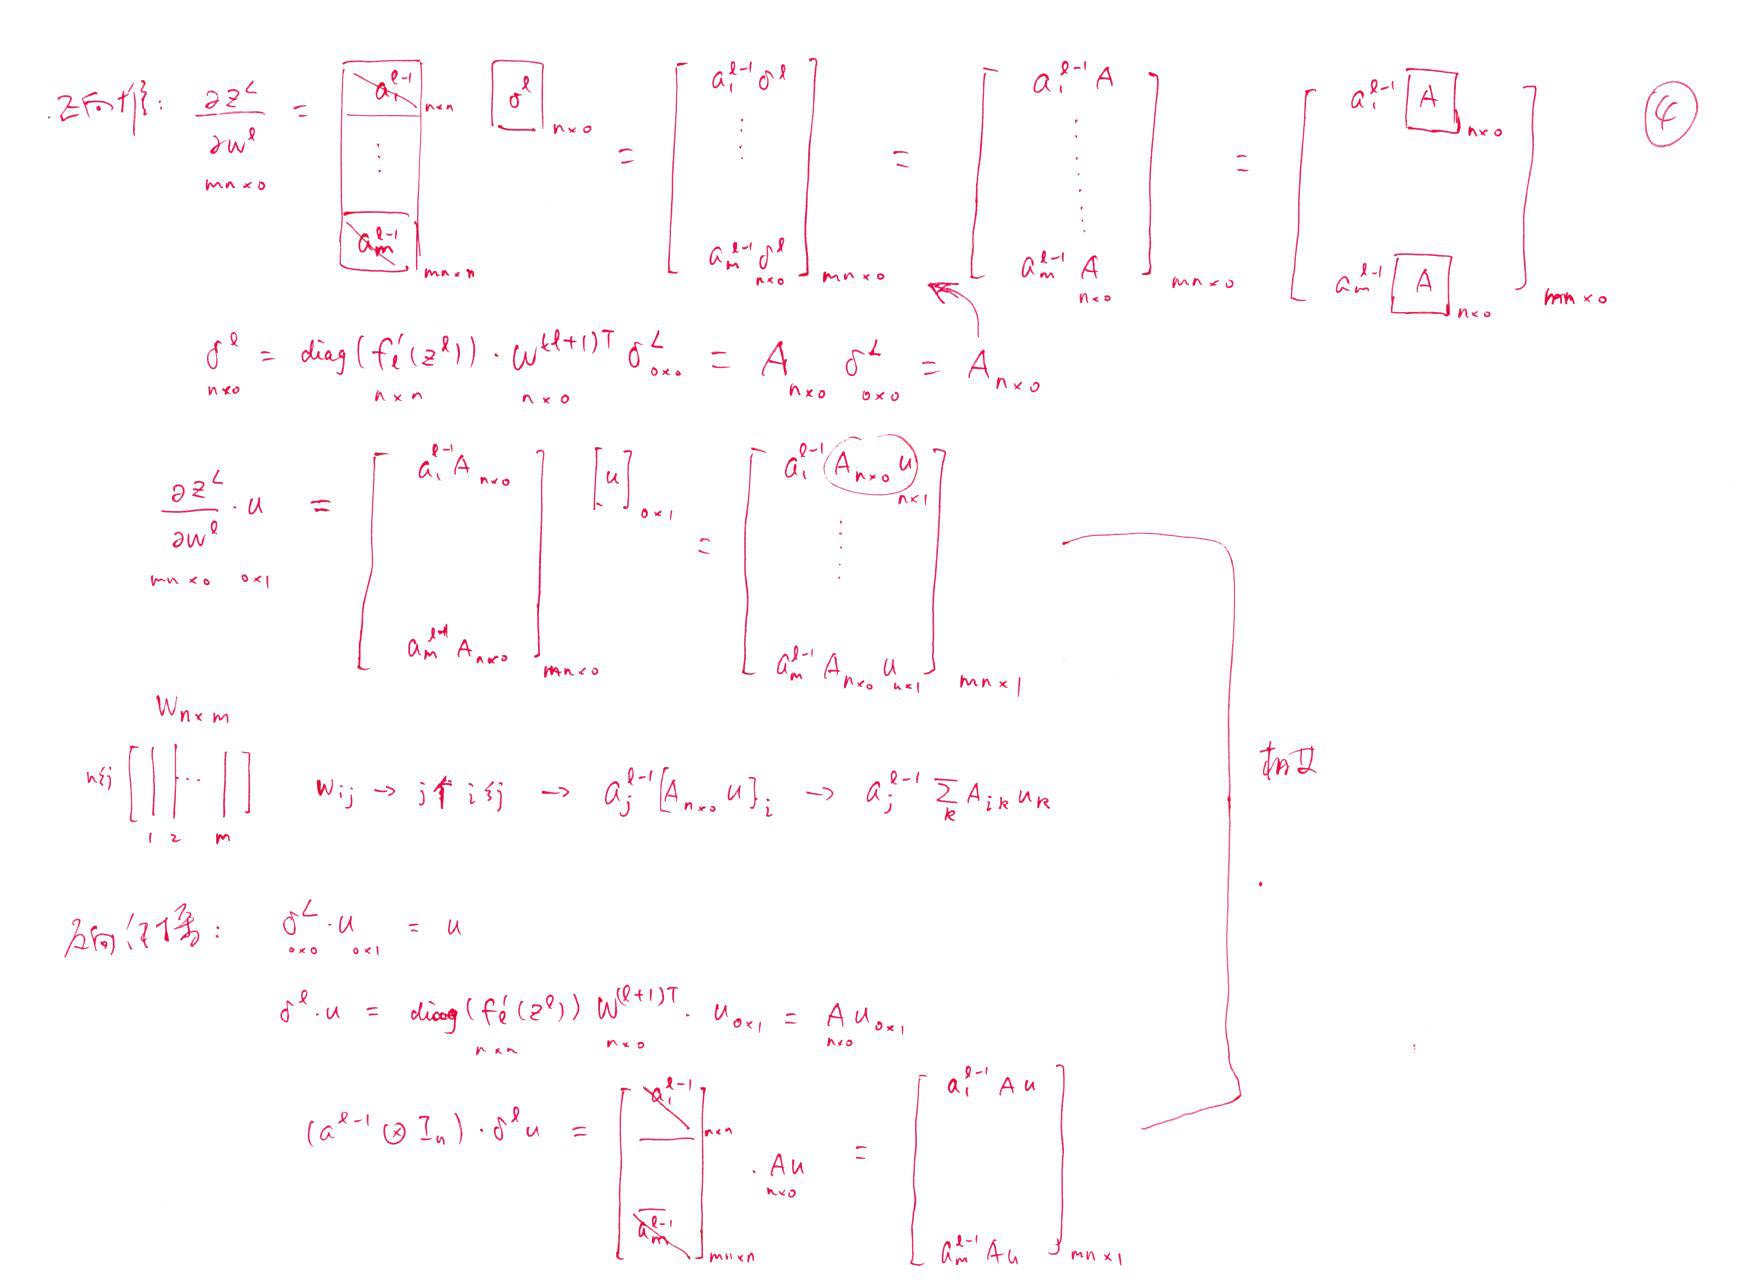 正向推: ∂z^L / ∂w^l mn×o = [a_1^{l-1} n×n ⋮ a_m^{l-1}] mn×n [δ^l] n×o = [a_1^{l-1} δ^l ⋮ a_m^{l-1} δ^l n×o] mn×o = [a_1^{l-1} A ⋮ a_m^{l-1} A n×o] mn×o = [a_1^{l-1} A n×o a_m^{l-1} A n×o] mn×o ④
δ^l n×o = diag(f_l'(z^l)) n×n · W^{(l+1)T} n×o δ^L o×o = A n×o δ^L o×o = A n×o
∂z^L / ∂w^l · u mn×o o×1 = [a_1^{l-1} A n×o a_m^{l-1} A n×o] mn×o [u] o×1 = [a_1^{l-1} A n×o u n×1 ⋮ a_m^{l-1} A n×o u n×1] mn×1
W n×m
n行 [ | | ⋯ | ] 1 2 m W_ij → j个 i行 → a_j^{l-1} [A n×o u]_i → a_j^{l-1} Σ_k A_ik u_k
相互
反向传播: δ^L o×o · u o×1 = u
δ^l · u = diag(f_l'(z^l)) n×n W^{(l+1)T} n×o · u o×1 = A n×o u o×1
(a^{l-1} ⊗ I_n) · δ^l u = [a_1^{l-1} n×n a_m^{l-1}] mn×n · Au n×o = [a_1^{l-1} Au a_m^{l-1} Au] mn×1